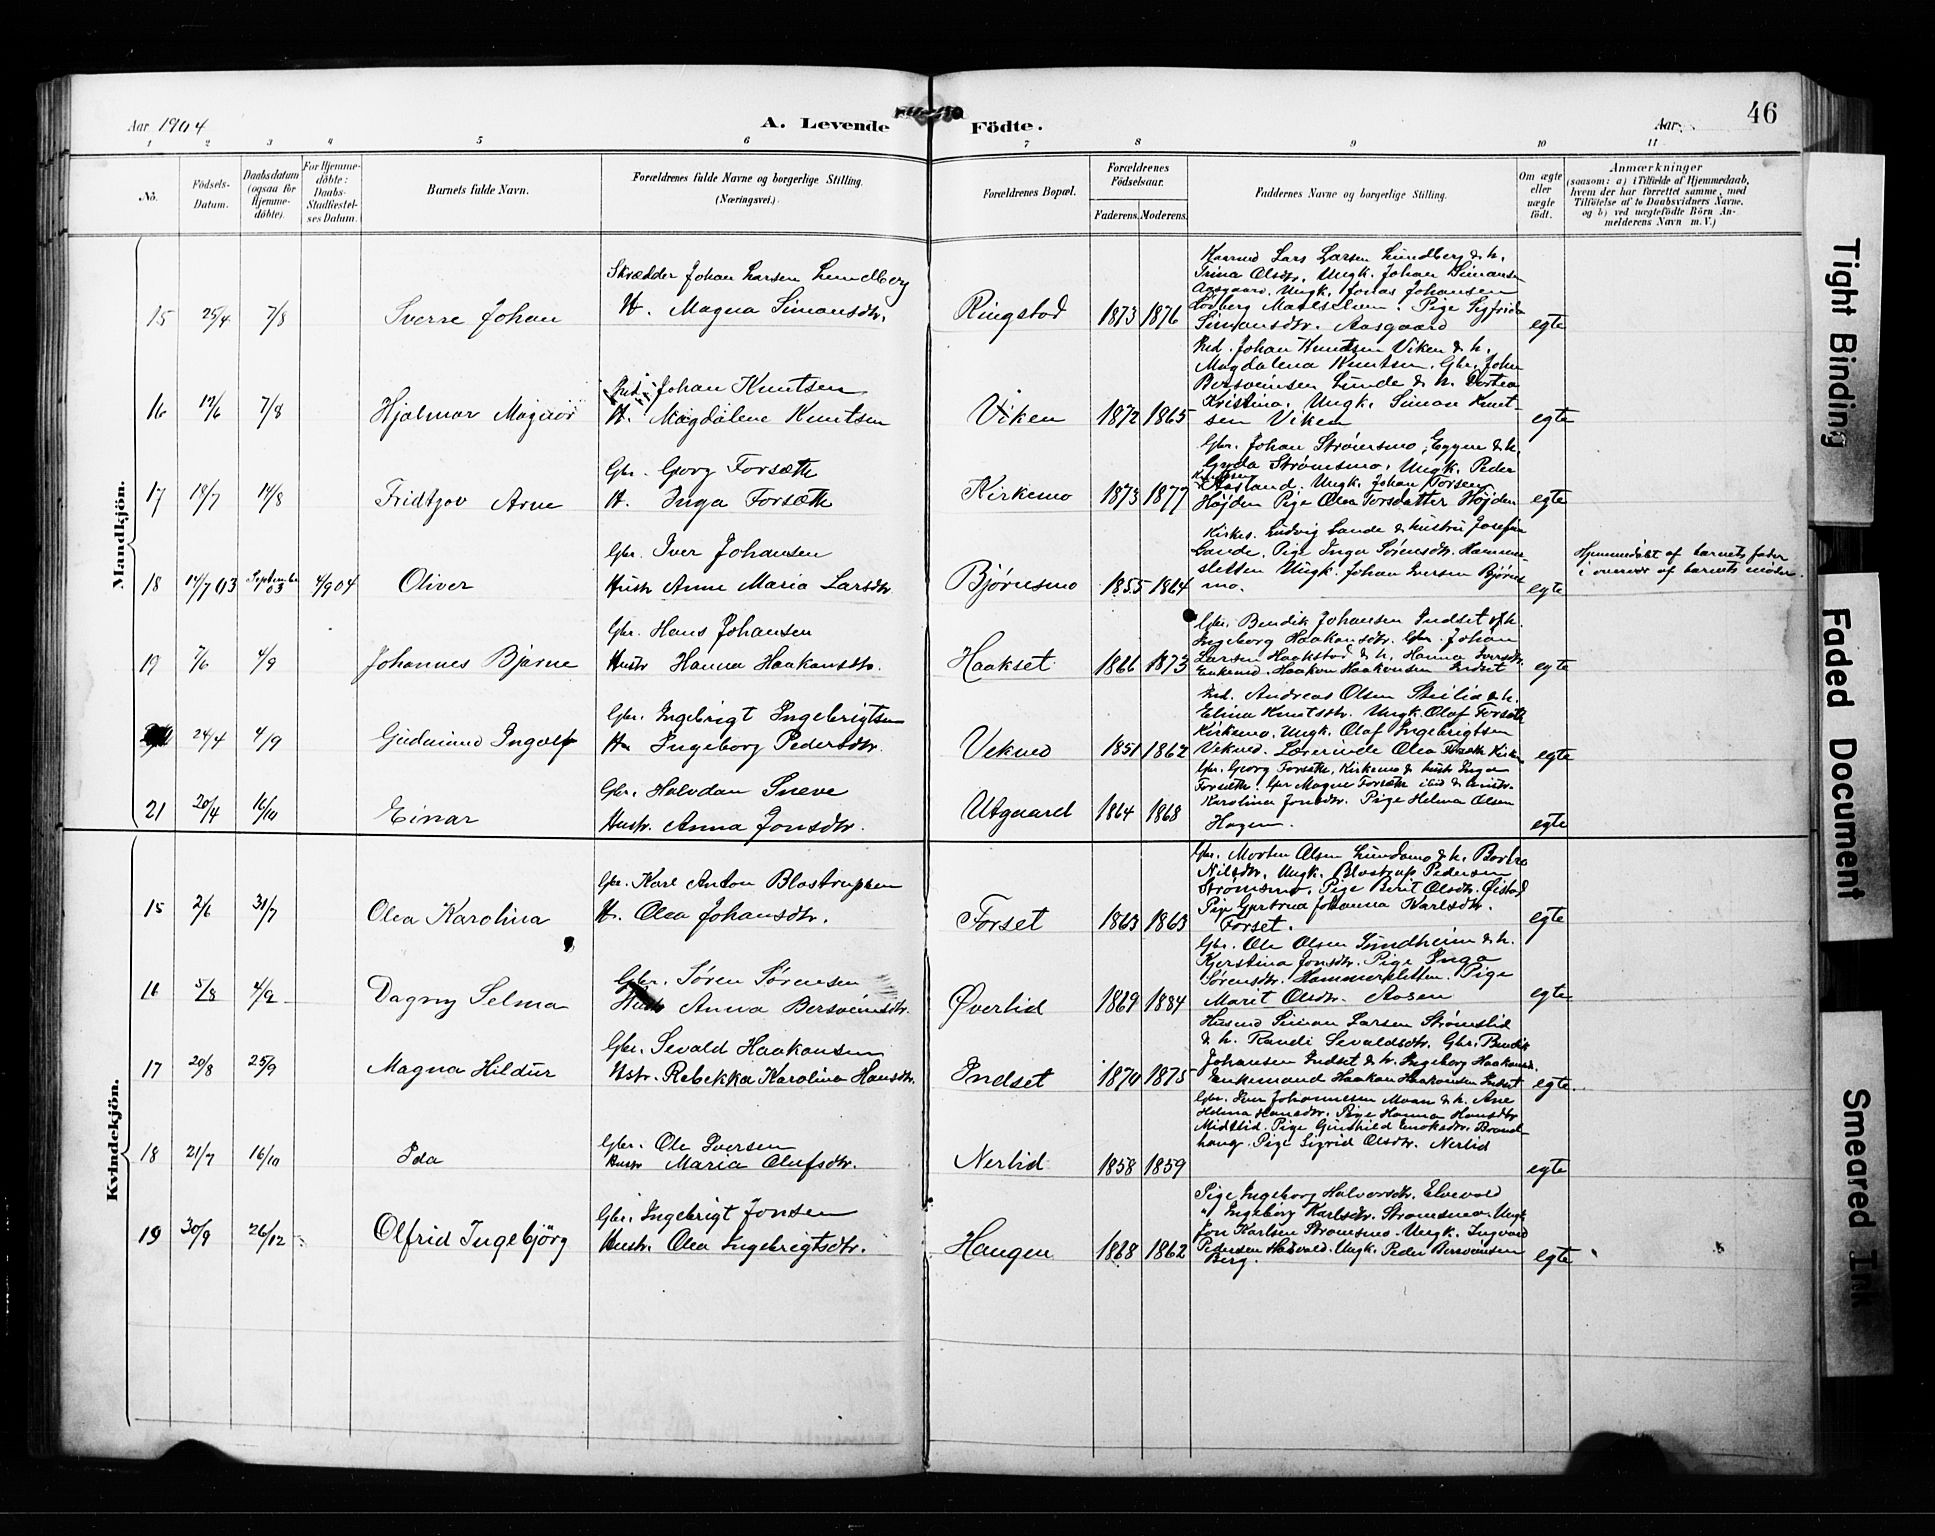 46
Aar 1904
A. Levende Födte.
Aar
1 2 3 4 5 6 7 8 9 10 11
No.
Födsels-
Datum.
Daabsdatum
(ogsaa for
Hjemme-
döbte).
For Hjemme-
döbte:
Daabs-
Stadfæstel-
ses Datum.
Barnets fulde Navn.
Forældrenes fulde Navne og borgerlige Stilling.
(Næringsvei.)
Forældrenes Bopæl.
Forældrenes
Födselsaar.
Faderens. Moderens.
Faddernes Navne og borgerlige Stilling.
Om ægte
eller
uægte
födt.
Anmærkninger
(saasom: a) i Tilfælde af Hjemmedaab,
hvem der har forrettet samme, med
Tilföielse af to Daabsvidners Navne,
og b) ved uægtefödte Börn An-
melderens Navn m.V.)
Mandkjön.
15 25/4 7/8 Sverre Johan
Skrædder Johan Larsen Lundberg
H. Magna Simonsdtr.
Ringstad 1873 1876
Kaarmd Lars Larsen Lundberg & h.
Trina Olsdtr. Ungk. Johan Simonsen
Aasgaard. Ungk. Jonas Johansen
Lødberg Maalselven. Pige Sigfrida
Simonsdtr. Aasgaard
egte
16 12/6 7/8 Hjalmar Magnor
Ind. Johan Knutsen
H. Magdalene Knutsen
Viken 1872 1865
Ind. Johan Knutsen Viken & h.
Magdalena Knutsen. Gbr. John
Bersveinsen Lunde & h. Dortea
Kristina. Ungk. Simon Knut-
sen Viken
egte
17 18/7 14/8 Fridtjov Arne
Gbr. Georg Forsæth
H. Inga Forsæth
Kirkemo 1873 1877
Gbr. Johan Strømsmo, Eggen & h.
Gyda Strømsmo. Ungk. Peder
Aasland. Ungk. Johan Torsen
Højden Pige Olea Torsdatter Højden
egte
18 14/7 03 September 03 4/9 04 Oliver
Gbr. Iver Johansen
Hustr Anne Maria Larsdtr.
Bjørnsmo 1855 1864
Kirkes. Ludvig Lande & hustru Josefine
Lande. Pige Inga Sørensdtr. Hammer-
sletten Ungk. Johan Iversen Bjørns-
mo.
egte
Hjemmedøbt af barnets fader
i overvær af barnets moder.
19 7/6 4/9 Johannes Bjarne
Gbr. Hans Johansen
Hustr Hanna Haakonsdtr.
Haakset 1866 1873
Gbr. Bendik Johansen Indset & h.
Ingeborg Haakonsdtr. Gbr. Johan
Larsen Haakstad & h. Hanna Iversdtr.
Enkemd. Haakon Haakonsen Indset
egte
24/4 4/9 Gudmund Ingolf
Gbr. Ingebrigt Ingebrigtsen
H. Ingeborg Pedersdtr.
Veknes 1851 1862
Ind. Andreas Olsen Stilia & h.
Elina Knutsdtr. Ungk. Olaf Forsæth
Kirkemo. Ungk. Olaf Ingebrigtsen
Veknes. Lærerinde Olea
egte
21 20/4 16/10 Einar
Gbr. Halvdan Sneve
Hustr. Anna Jonsdtr.
Utgaard 1864 1868
Gbr. Georg Forsæth, Kirkemo & hustr Inga
Forsæth. Gbr Magne Forsæth ibid & hustr.
Karolina Jonsdtr. Pige Helma Olsen
Hagen.
egte
Kvindekjön.
15 2/6 31/7 Olea Karolina
Gbr. Karl Anton Blostrupsen
H. Olea Johansdtr.
Forset 1863 1863
Gbr. Morten Olsen Lundamo & h. Bortra
Nilsdtr. Ungk. Blostrup Pedersen
Strømsmo. Pige Berit Olsdtr. Øistad
Pige Gjertrud Johanna Karlsdtr.
Forset.
egte
16 5/8 4/9 Dagny Selma
Gbr. Søren Sørensen
Hustr Anna Bersveinsdtr.
Øverlid 1869 1884
Gbr. Ole Olsen Sundheim & h.
Kjerstina Jonsdtr. Pige Inga
Sørensdtr. Hammersletten. Pige
Marit Olsdtr. Aasen
egte
17 20/8 25/9 Magna Hildur
Gbr. Sevald Haakonsen
Hstr. Rebekka Karolina Hansdtr.
Indset 1870 1875
Husmd Simon Larsen Strømslid
& h. Randi Sevaldsdtr. Gbr. Bendik
Johansen Indset & h. Ingeborg Haakonsd.
Enkemand Haakon Haakonsen Indset
egte.
18 21/7 16/10 Ida
Gbr. Ole Iversen
Hustr Maria Olufsdtr.
Nerlid 1858 1859
Gbr. Iver Johannesen Moan & h. Ane
Helma Hansdtr. Pige Hanna Hansdtr
Midtlid. Pige Gunhild Enoksdtr. Brand-
haug. Pige Sigrid Olsdtr. Nerlid
egte
19 30/9 26/12 Olfrid Ingebjörg
Gbr. Ingebrigt Jonsen
Hustr. Olea Ingebrigtsdtr.
Haugen 1868 1862
Pige Ingeborg Halvorsdtr. Elvevold
" Ingeborg Karlsdtr. Strømsmo. Ungk
Jon Karlsen Strømsmo. Ungk. Ingvald
Pedersen Halvold. Ungk. Peder Bersveinsen
Berg.
egte
Tight Binding
Faded Document
Smeared Ink